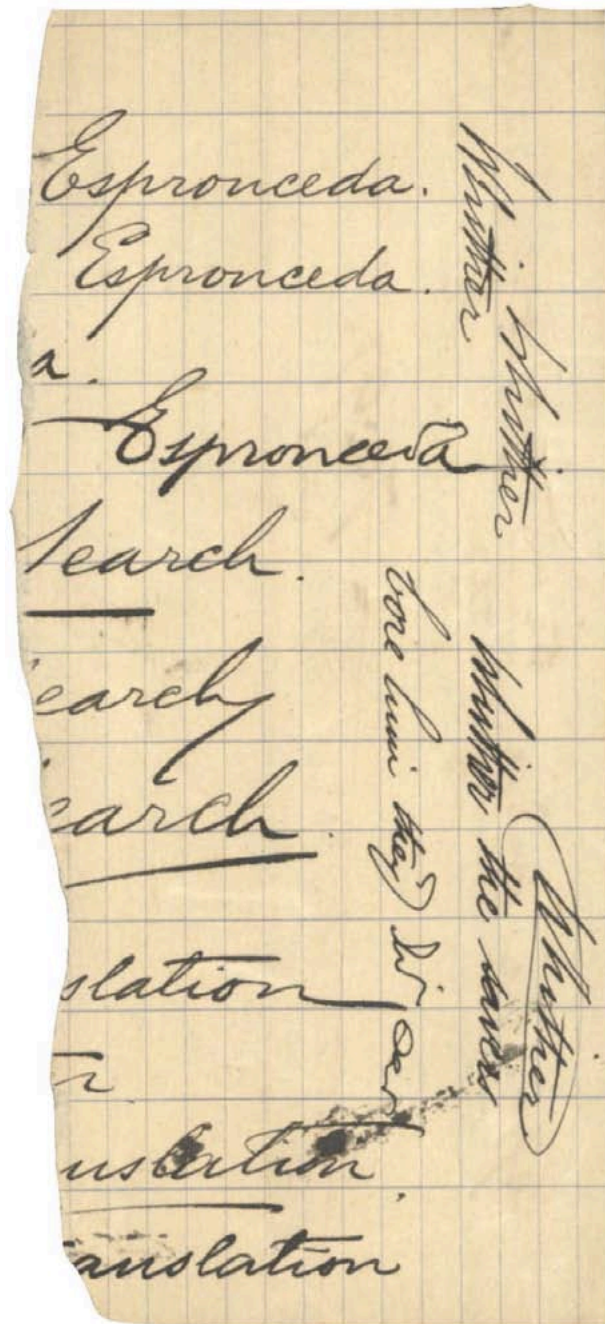 Espronceda.
Espronceda.
a.
Espronceda
Search.
earch
earch.
slation
n
nslation.
anslation
Whither
Whither
Whither the
Whither
bore him they